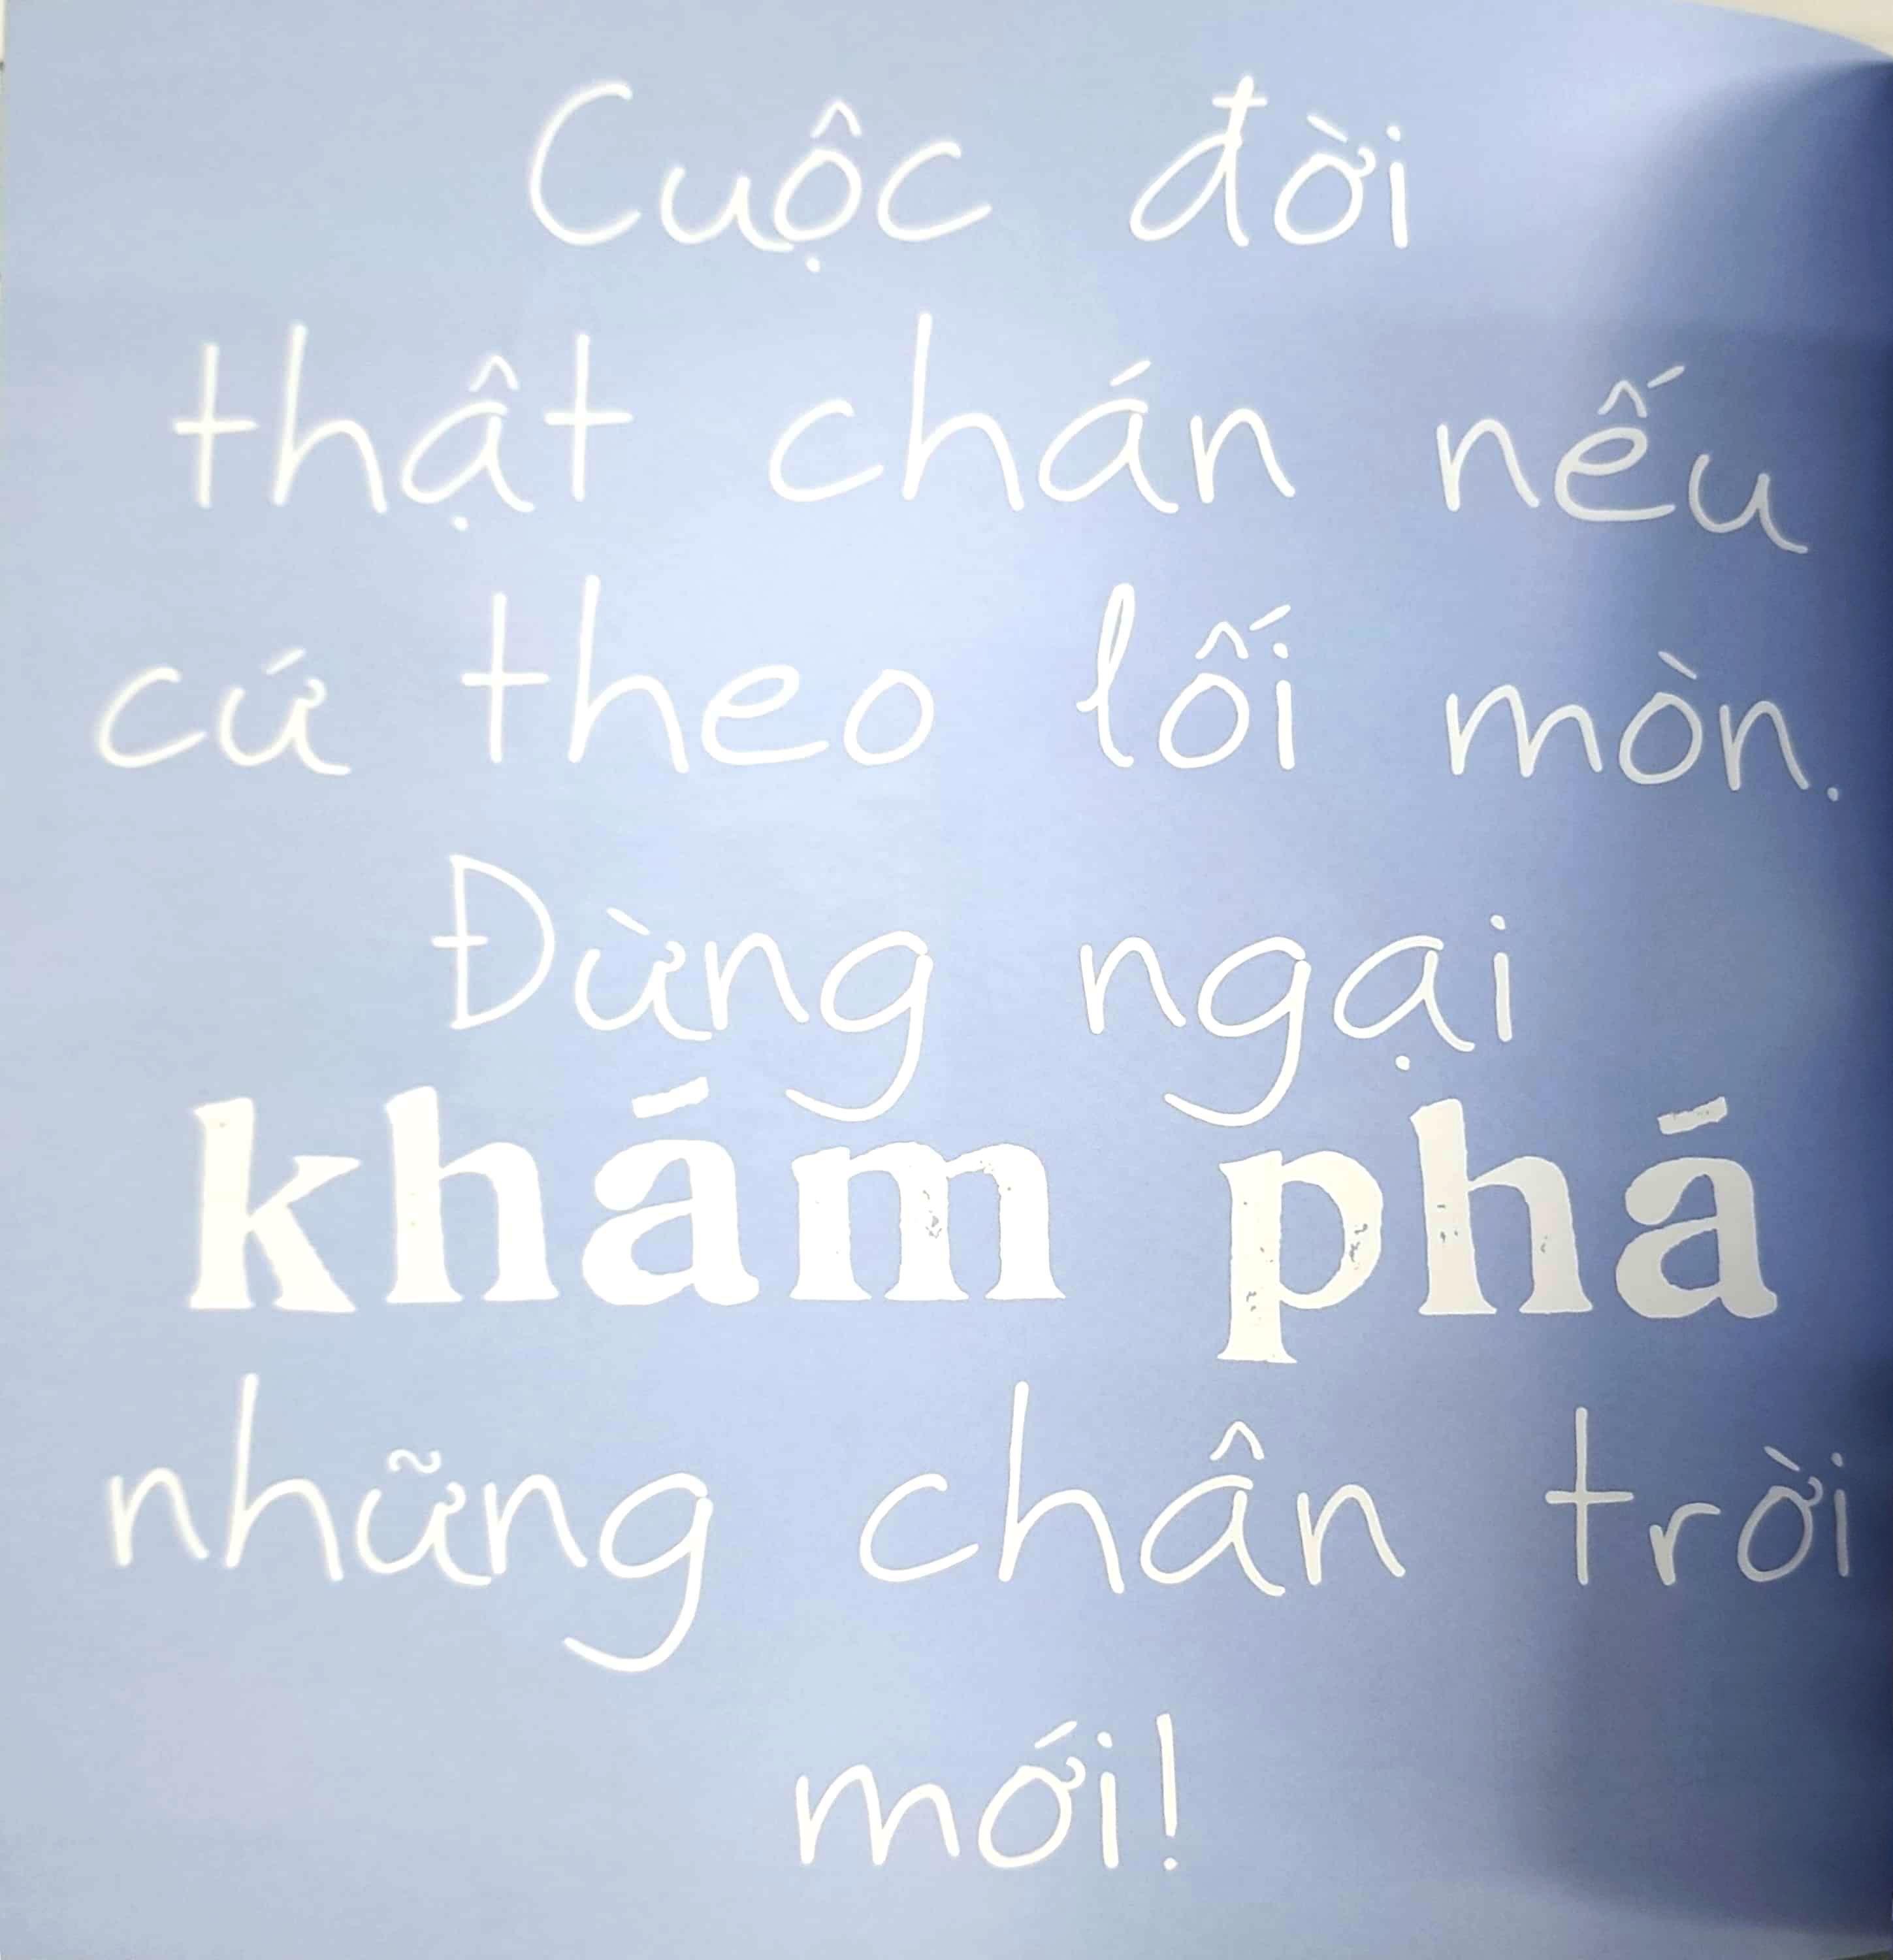 Cuộc đời
thật chán nếu
cứ theo lối mòn.
Đừng ngại
khám phá
những chân trời
mới!